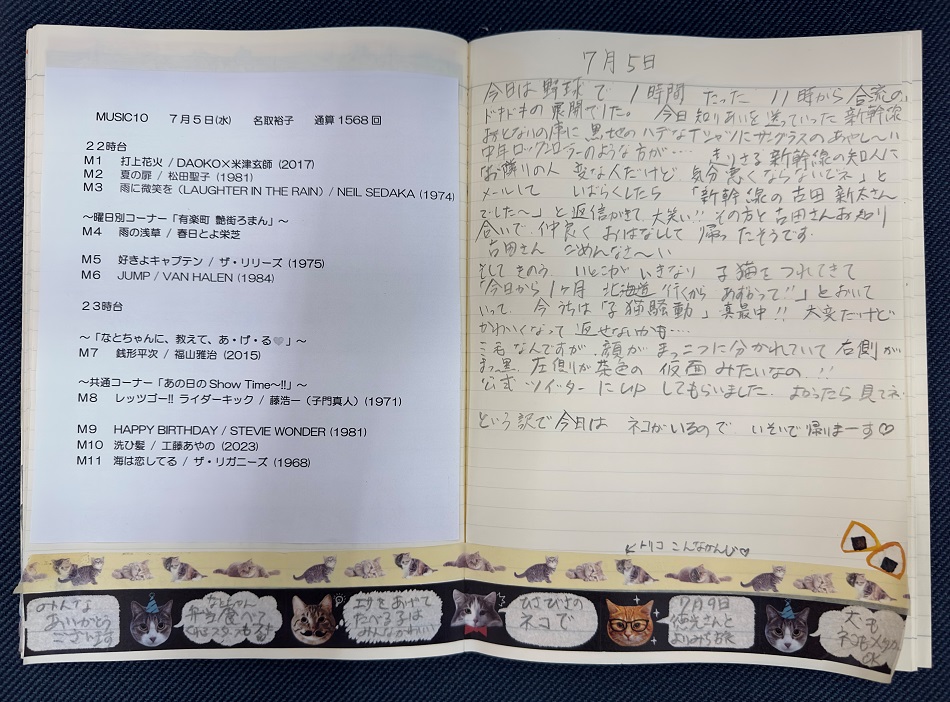 MUSIC10　7月5日(水)　名取裕子　通算1568回
22時台
M1　打上花火 / DAOKO×米津玄師 (2017)
M2　夏の扉 / 松田聖子 (1981)
M3　雨に微笑を (LAUGHTER IN THE RAIN) / NEIL SEDAKA (1974)
～曜日別コーナー「有楽町 艶街ろまん」～
M4　雨の浅草 / 春日とよ栄芝
M5　好きよキャプテン / ザ・リリーズ (1975)
M6　JUMP / VAN HALEN (1984)
23時台
～「なとちゃんに、教えて、あ・げ・る♥」～
M7　銭形平次 / 福山雅治 (2015)
～共通コーナー「あの日のShow Time～!!」～
M8　レッツゴー!! ライダーキック / 藤浩一（子門真人）(1971)
M9　HAPPY BIRTHDAY / STEVIE WONDER (1981)
M10　洗ひ髪 / 工藤あやの (2023)
M11　海は恋してる / ザ・リガニーズ (1968)
7月5日
今日は野球で 1時間 たった 11時から合流の、
ドキドキの展開でした。今日知りあいを送っていった新幹線
おとなりの席に黒地のハデなTシャツにサングラスのあやし～い
中年ロックンローラーのような方が… 走りさる新幹線の知人に
「お隣りの人 変な人だけど 気分悪くならないでネ」と
メールして しばらくしたら 「新幹線の古田新太さん
でした～」と返信がきて 大笑い!! その方と古田さんお知り
合いで 仲良く おはなしして 帰ったそうです.
古田さん ごめんなさ～い
そして きのう いとこが いきなり 子猫をつれてきて
「今日から1ヶ月 北海道 行くから あずかって!!」とおいて
いって 今うちは「子猫騒動」真最中!! 大変だけど
かわいくなって 返せないかも…
三毛なんですが 顔が まっ二つに分かれていて 右側が
まっ黒 左側が茶色の 仮面みたいなの!!
公式ツイッターに up してもらいました. よかったら見てネ.
という訳で今日は ネコがいるので いそいで帰りまーす♡
↙トリコ こんなかんじ♡
みんな
ありがとう
ございます
なとちゃん
弁当食べて
エサをあげて
たべる子は
みんなかわいい
ひさびさの
ネコで
7月9日
さんと
よりみち旅
犬も
ネコも
OK